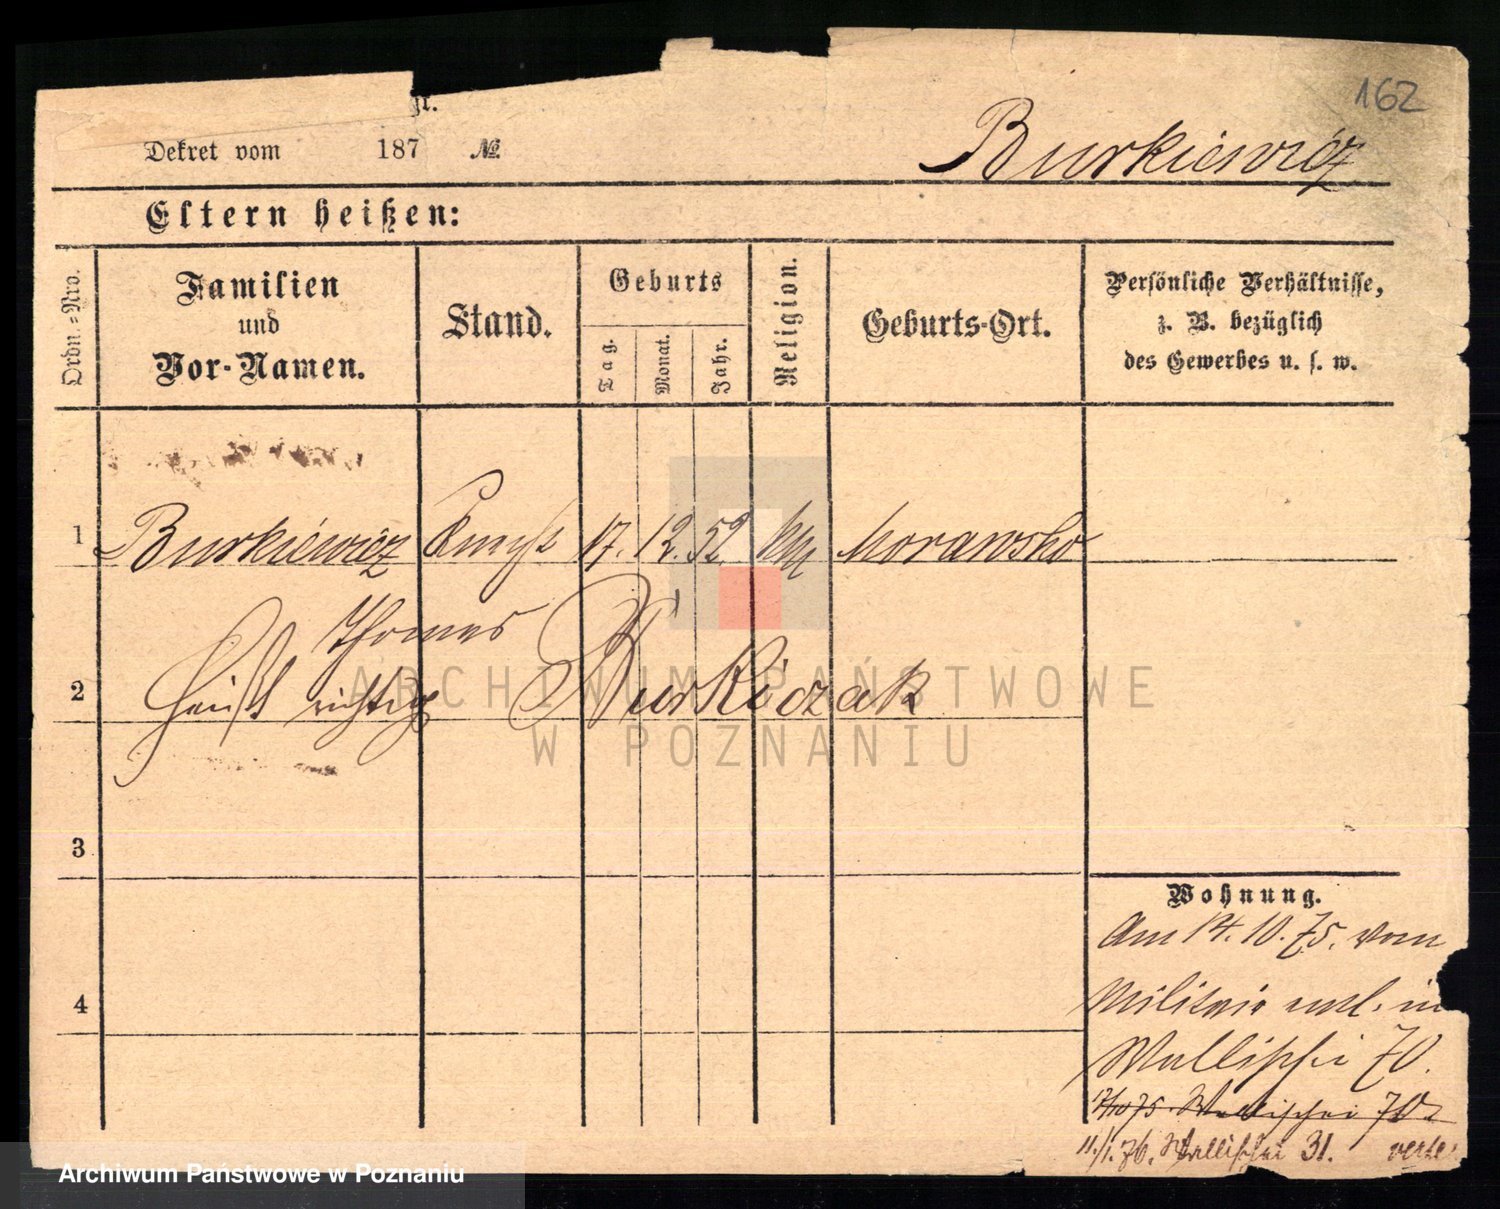 162
gr.
Dekret vom 187 №
Burkiewicz
Eltern heißen:
Ordn.-Nro.
Familien
und
Vor-Namen.
Stand.
Geburts
Tag.
Monat.
Jahr.
Religion.
Geburts-Ort.
Persönliche Verhältnisse,
z. B. bezüglich
des Gewerbes u. s. w.
1 Burkiewicz 17. 12. 52 Morawsko
Thomas
2 heißt richtig Burkiczak
3
4
Wohnung.
Am 14. 10. 75. vom
Militair entl. in
Wallischei 70.
17/10 75. Wallischei 70
11./1. 76. Wallischei 31. verte
ARCHIWUM PAŃSTWOWE
W POZNANIU
Archiwum Państwowe w Poznaniu